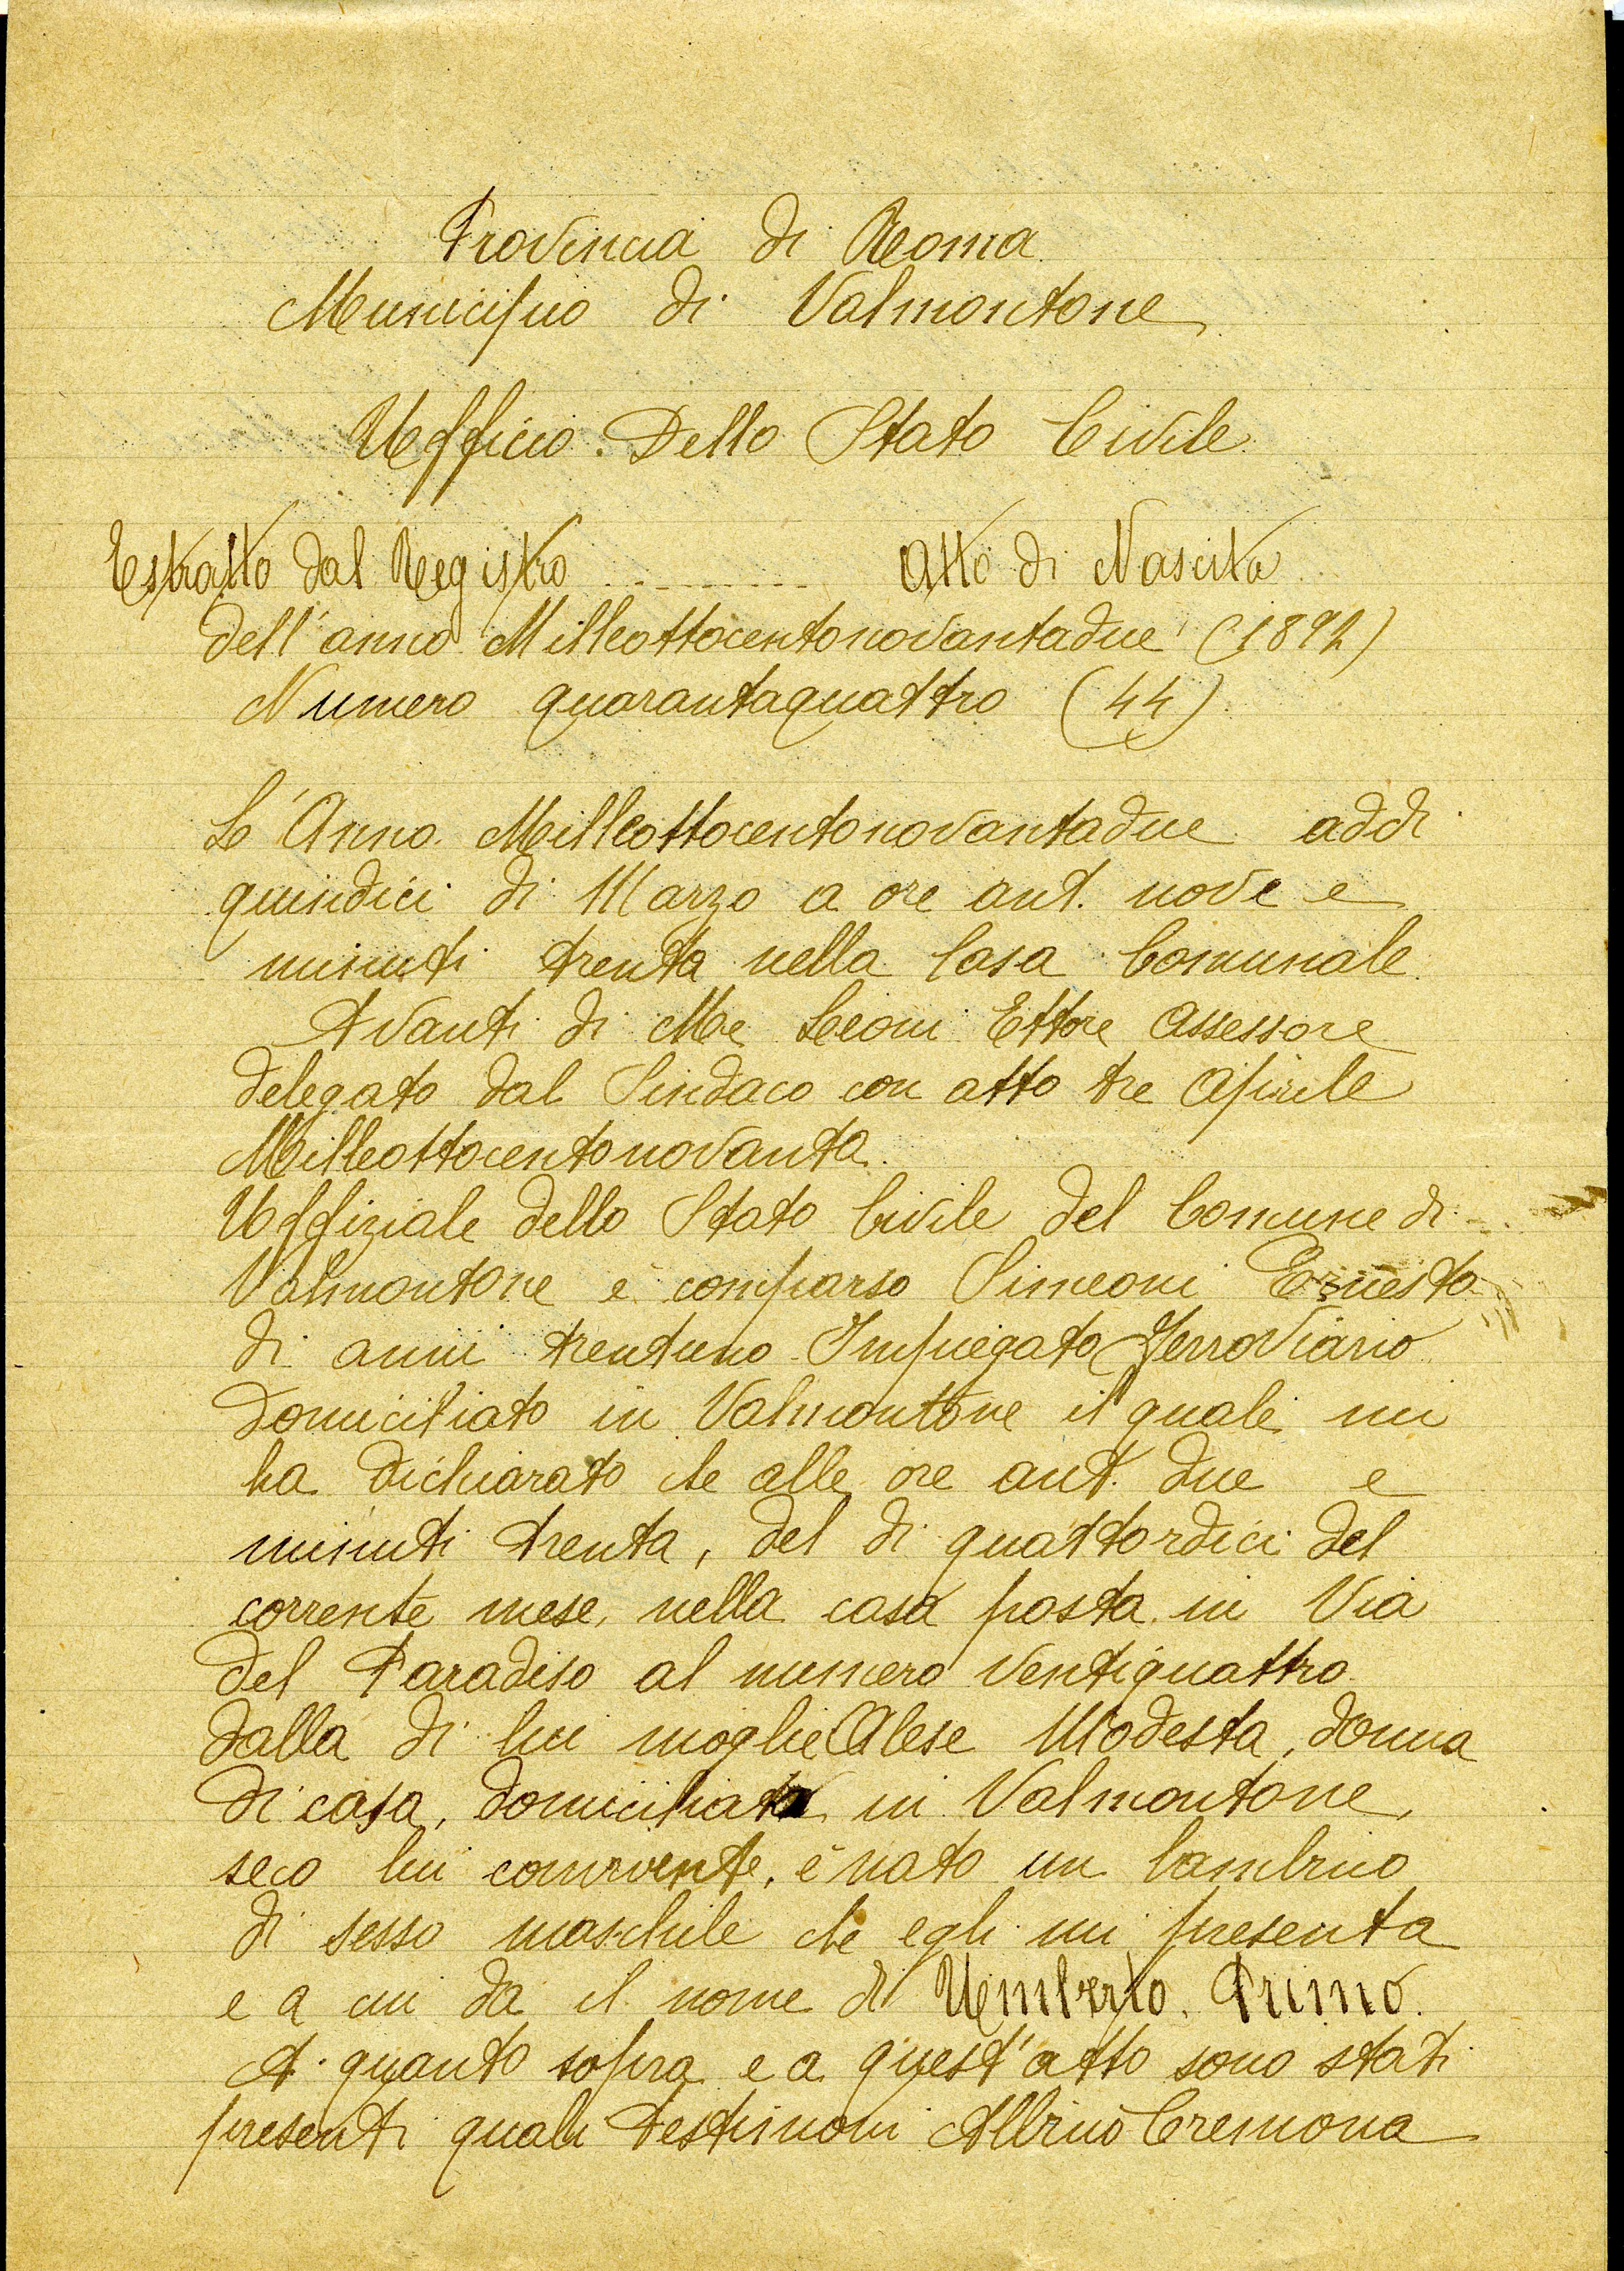 Provincia di Roma
Municipio di Valmontone
Ufficio Dello Stato Civile
Estratto dal Registro -------- Atto di Nascita
dell'anno Milleottocentonovantadue (1892)
Numero quarantaquattro (44)
L'Anno Milleottocentonovantadue addi
quindici di Marzo a ore ant. nove e
minuti trenta nella Casa Comunale
Avanti di Me Leoni Ettore Assessore
delegato dal Sindaco con atto tre Aprile
Milleottocentonovanta
Uffiziale dello Stato Civile del Comune di
Valmontone è comparso Simeoni Ernesto
di anni trentuno Impiegato Ferroviario
domiciliato in Valmontone il quale mi
ha dichiarato che alle ore ant. due e
minuti trenta, del di quattordici del
corrente mese, nella casa posta in Via
del Paradiso al numero ventiquattro
dalla di lui moglie Alese Modesta, donna
di casa, domiciliata in Valmontone,
seco lui convivente, è nato un bambino
di sesso maschile che egli mi presenta
e a cui da il nome di Umberto. Primo.
A quanto sopra e a quest'atto sono stati
presenti quali testimoni Albino Cremona